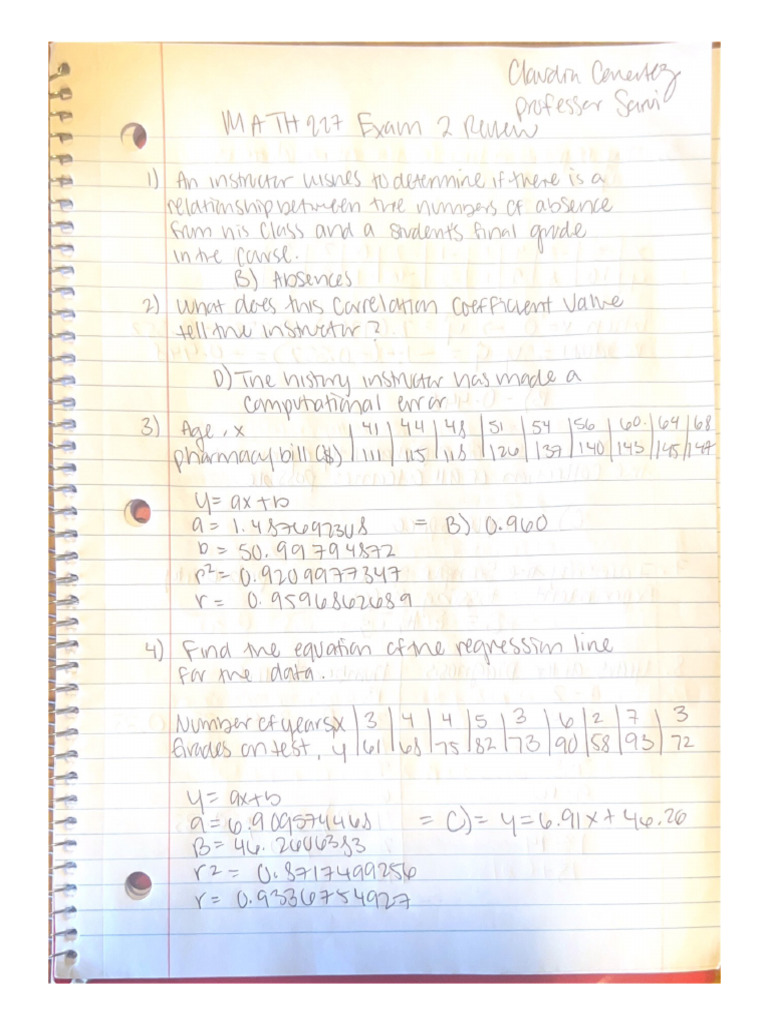 Professor Sami
MATH 227 Exam 2 Review
1) An instructor wishes to determine if there is a
relationship between the numbers of absence
from his class and a student's final grade
in the course.
B) Absences
2) What does this Correlation Coefficient Value
tell the instructor?
D) The history instructor has made a
computational error
3) Age, x | 41 | 44 | 48 | 51 | 54 | 56 | 60 | 64 | 68
pharmacy bill ($) | 111 | 115 | 118 | 126 | 137 | 140 | 143 | 145 | 147
y = ax+b
a = 1.487692308 = B) 0.960
b = 50.99794872
r² = 0.9209977347
r = 0.9596862689
4) Find the equation of the regression line
for the data.
Number of years, x | 3 | 4 | 4 | 5 | 3 | 6 | 2 | 7 | 3
Grades on test, y | 61 | 68 | 75 | 82 | 73 | 90 | 58 | 93 | 72
y = ax+b
a = 6.909574468 = C) = y = 6.91x + 46.26
B = 46.2606383
r2 = 0.8717499256
r = 0.9336754927